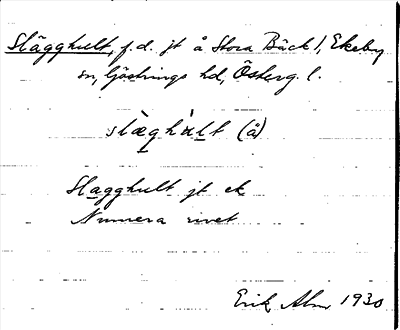 Slägghult, f.d. jt å Stora Bäck 1, Ekeby
sn, Göstrings hd, Österg. l.
slàghù̀lt (å)
Slagghult jt ek
Numera rivet
Erik Alm 1930